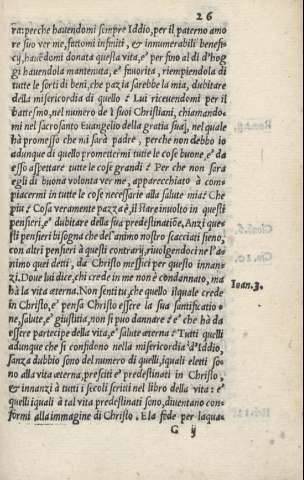 26
ra: perche havendomi sempre Iddio, per il paterno amo
re suo ver me, fattomi infiniti, & innumerabili benefi-
cij, havendomi donata questa vita, e' per fino al dì d'hog
gi havendola mantenuta, e' favorita, riempiendola di
tutte le sorti di beni, che pazzia sarebbe la mia, dubitare
della misericordia di quello? Lui ricevendomi per il
battesmo, nel numero de i suoi Christiani, chiamando-
mi nel sacrosanto Euangelio della gratia sua, nel quale
hà promesso che mi sarà padre, perche non debbo io
adunque di quello promettermi tutte le cose buone, e' da
esso aspettare tutte le cose grandi? Per che non sarà
egli di buona volontà ver me, apparecchiato à com
piacermi in tutte le cose necessarie alla salute mia? Che
più? Cosa veramente pazza è, il stare involto in questi
pensieri, e' dubitare della sua predestinatiõe. Anzi que
sti pensieri bisogna che del'animo nostro scacciati sieno,
con altri pensieri à questi contrarij, rivolgendoci ne l'a-
nimo quei detti, da Christo messici per questo innan-
zi. Dove lui dice, chi crede in me non è condannato, ma
hà la vita æterna. Non senti tu, che quello il quale crede
in Christo, e' pensa Christo essere la sua santificatio-
ne, salute, e' giustitia, non si puo dannare? e' che hà da
essere partecipe della vita, e' salute æterna? Tutti quelli
adunque che si confidono nella misericordia d'Iddio,
sanza dubbio sono del numero di quelli, i quali eletti so-
no alla vita æterna, presciti e' predestinati in Christo,
& innanzi à tutti i secoli scritti nel libro della vita: e'
quelli i quali à tal vita predestinati sono, diventano con-
formi alla immagine di Christo. E la fede per laqua-
Ioan. 3.
G ij